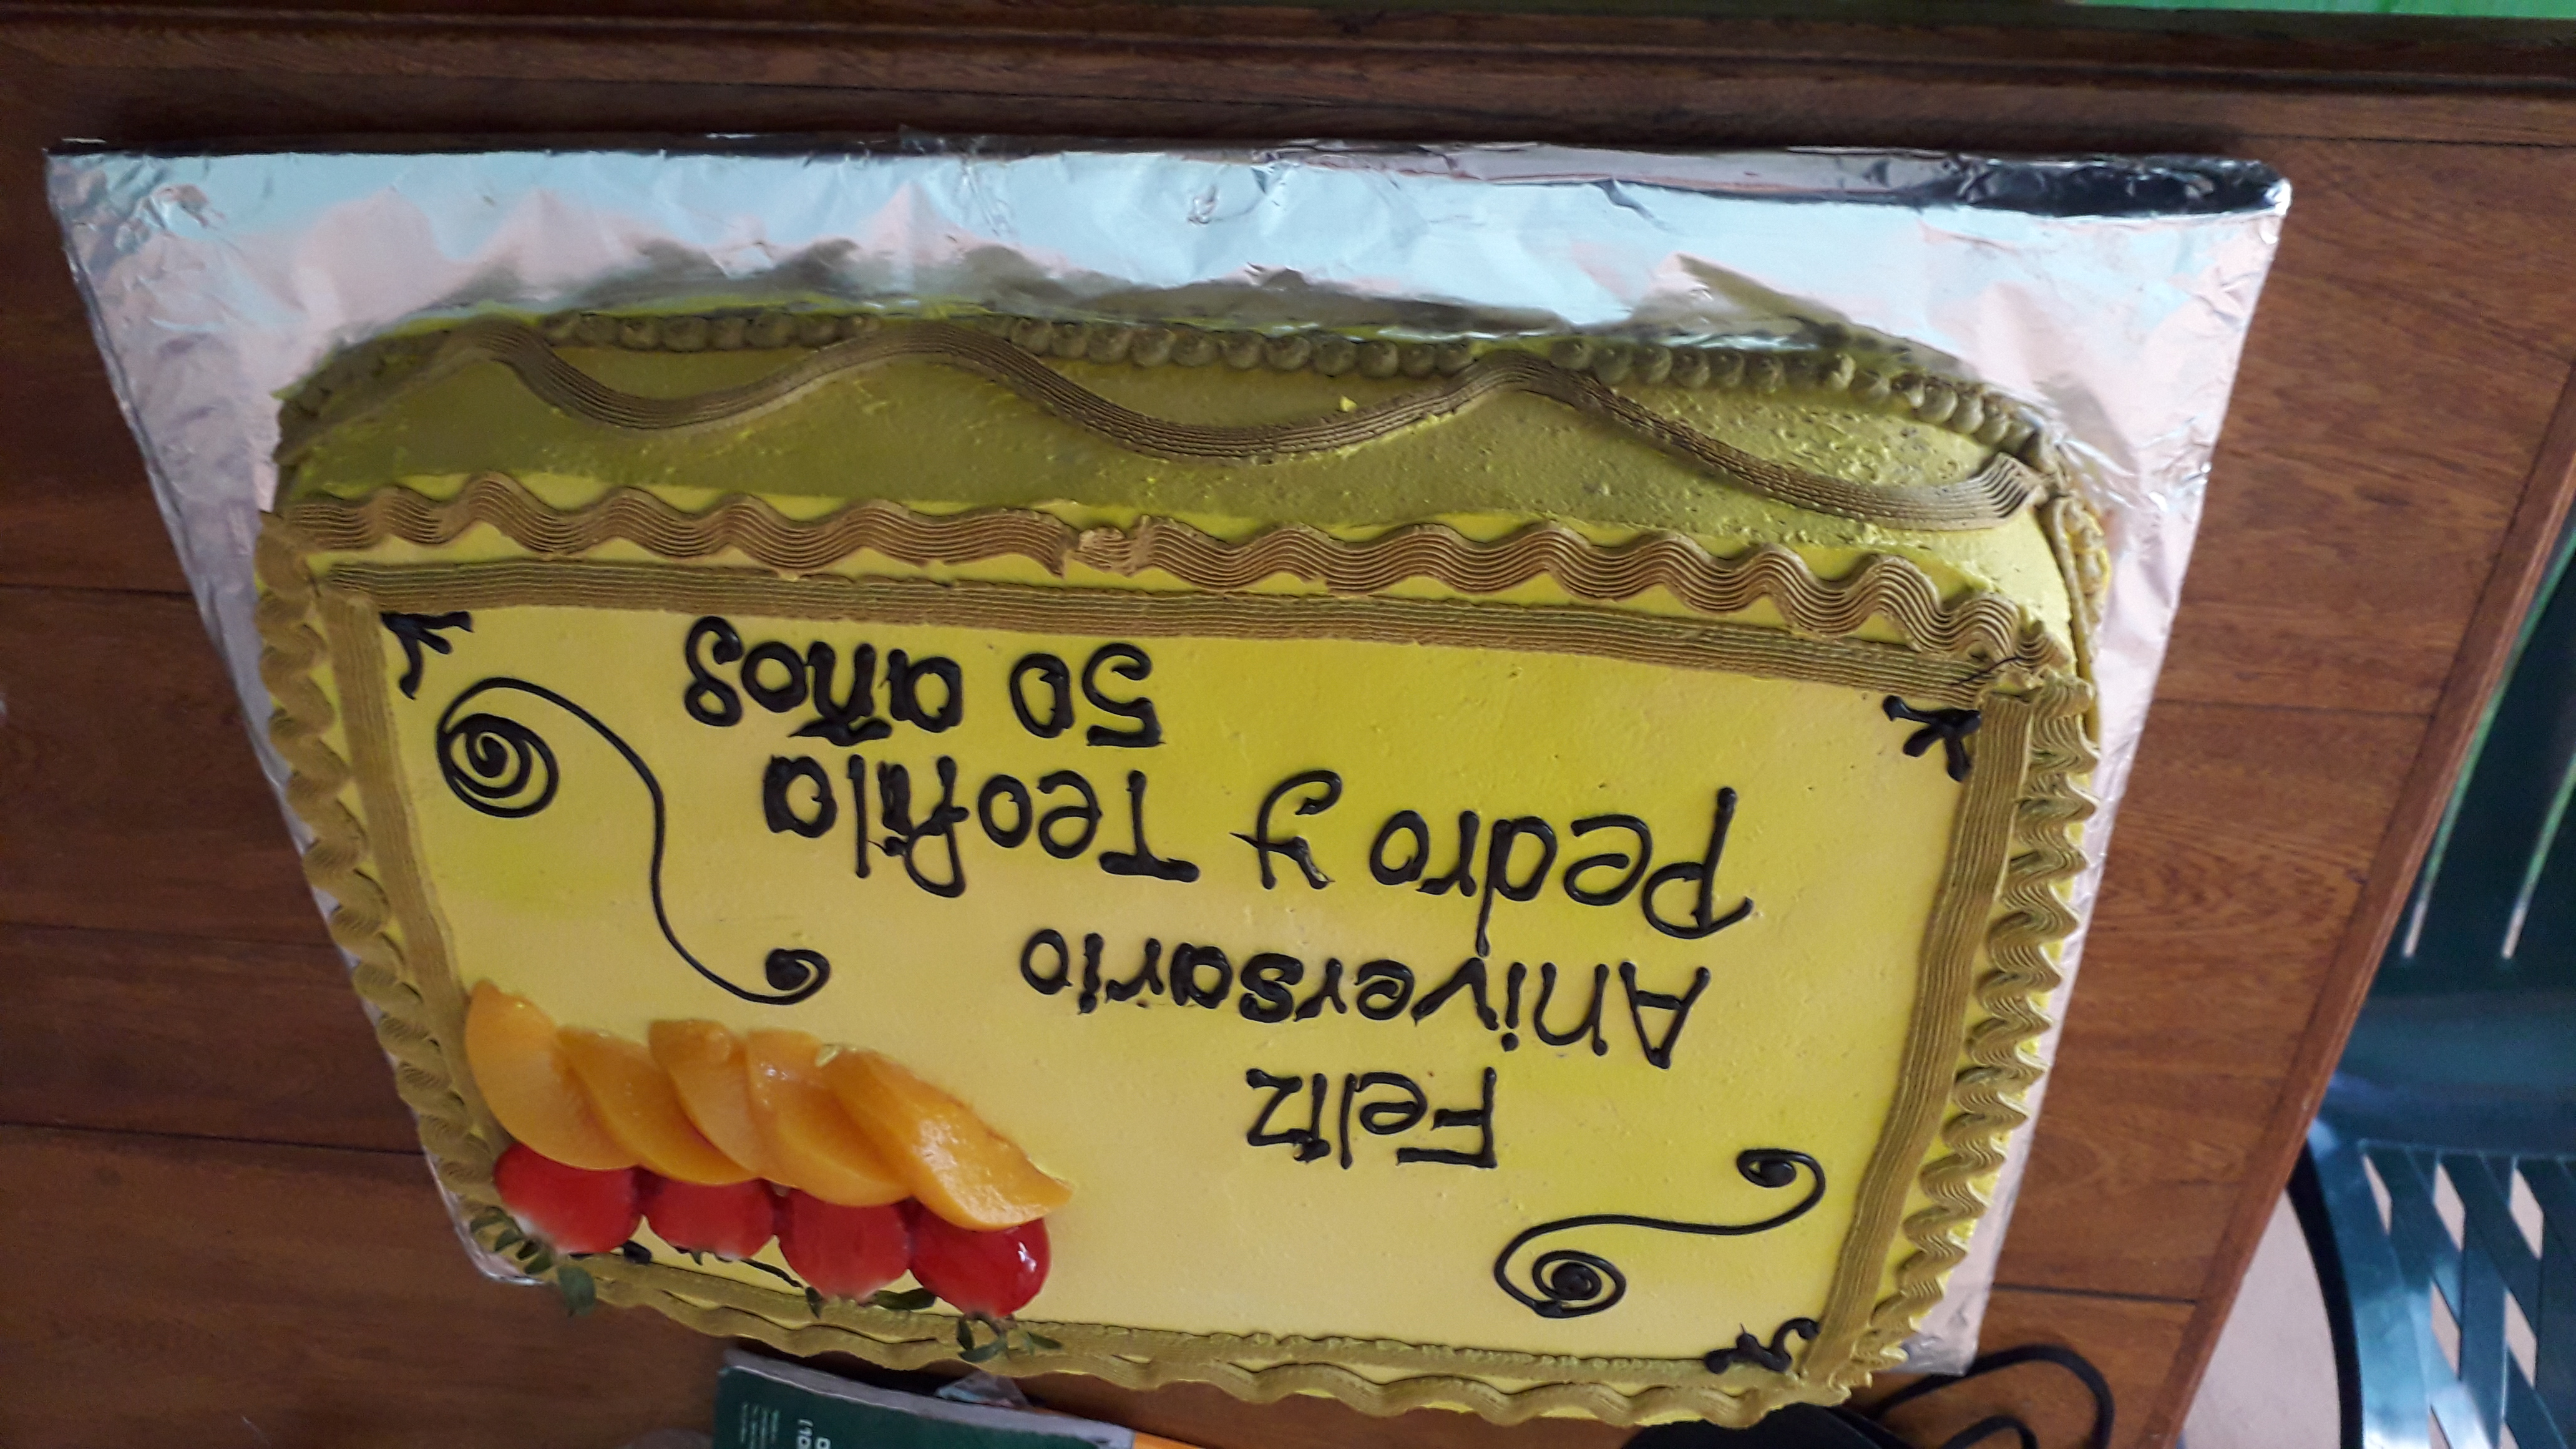 Feliz
Aniversario
Pedro y Teofila
50 años